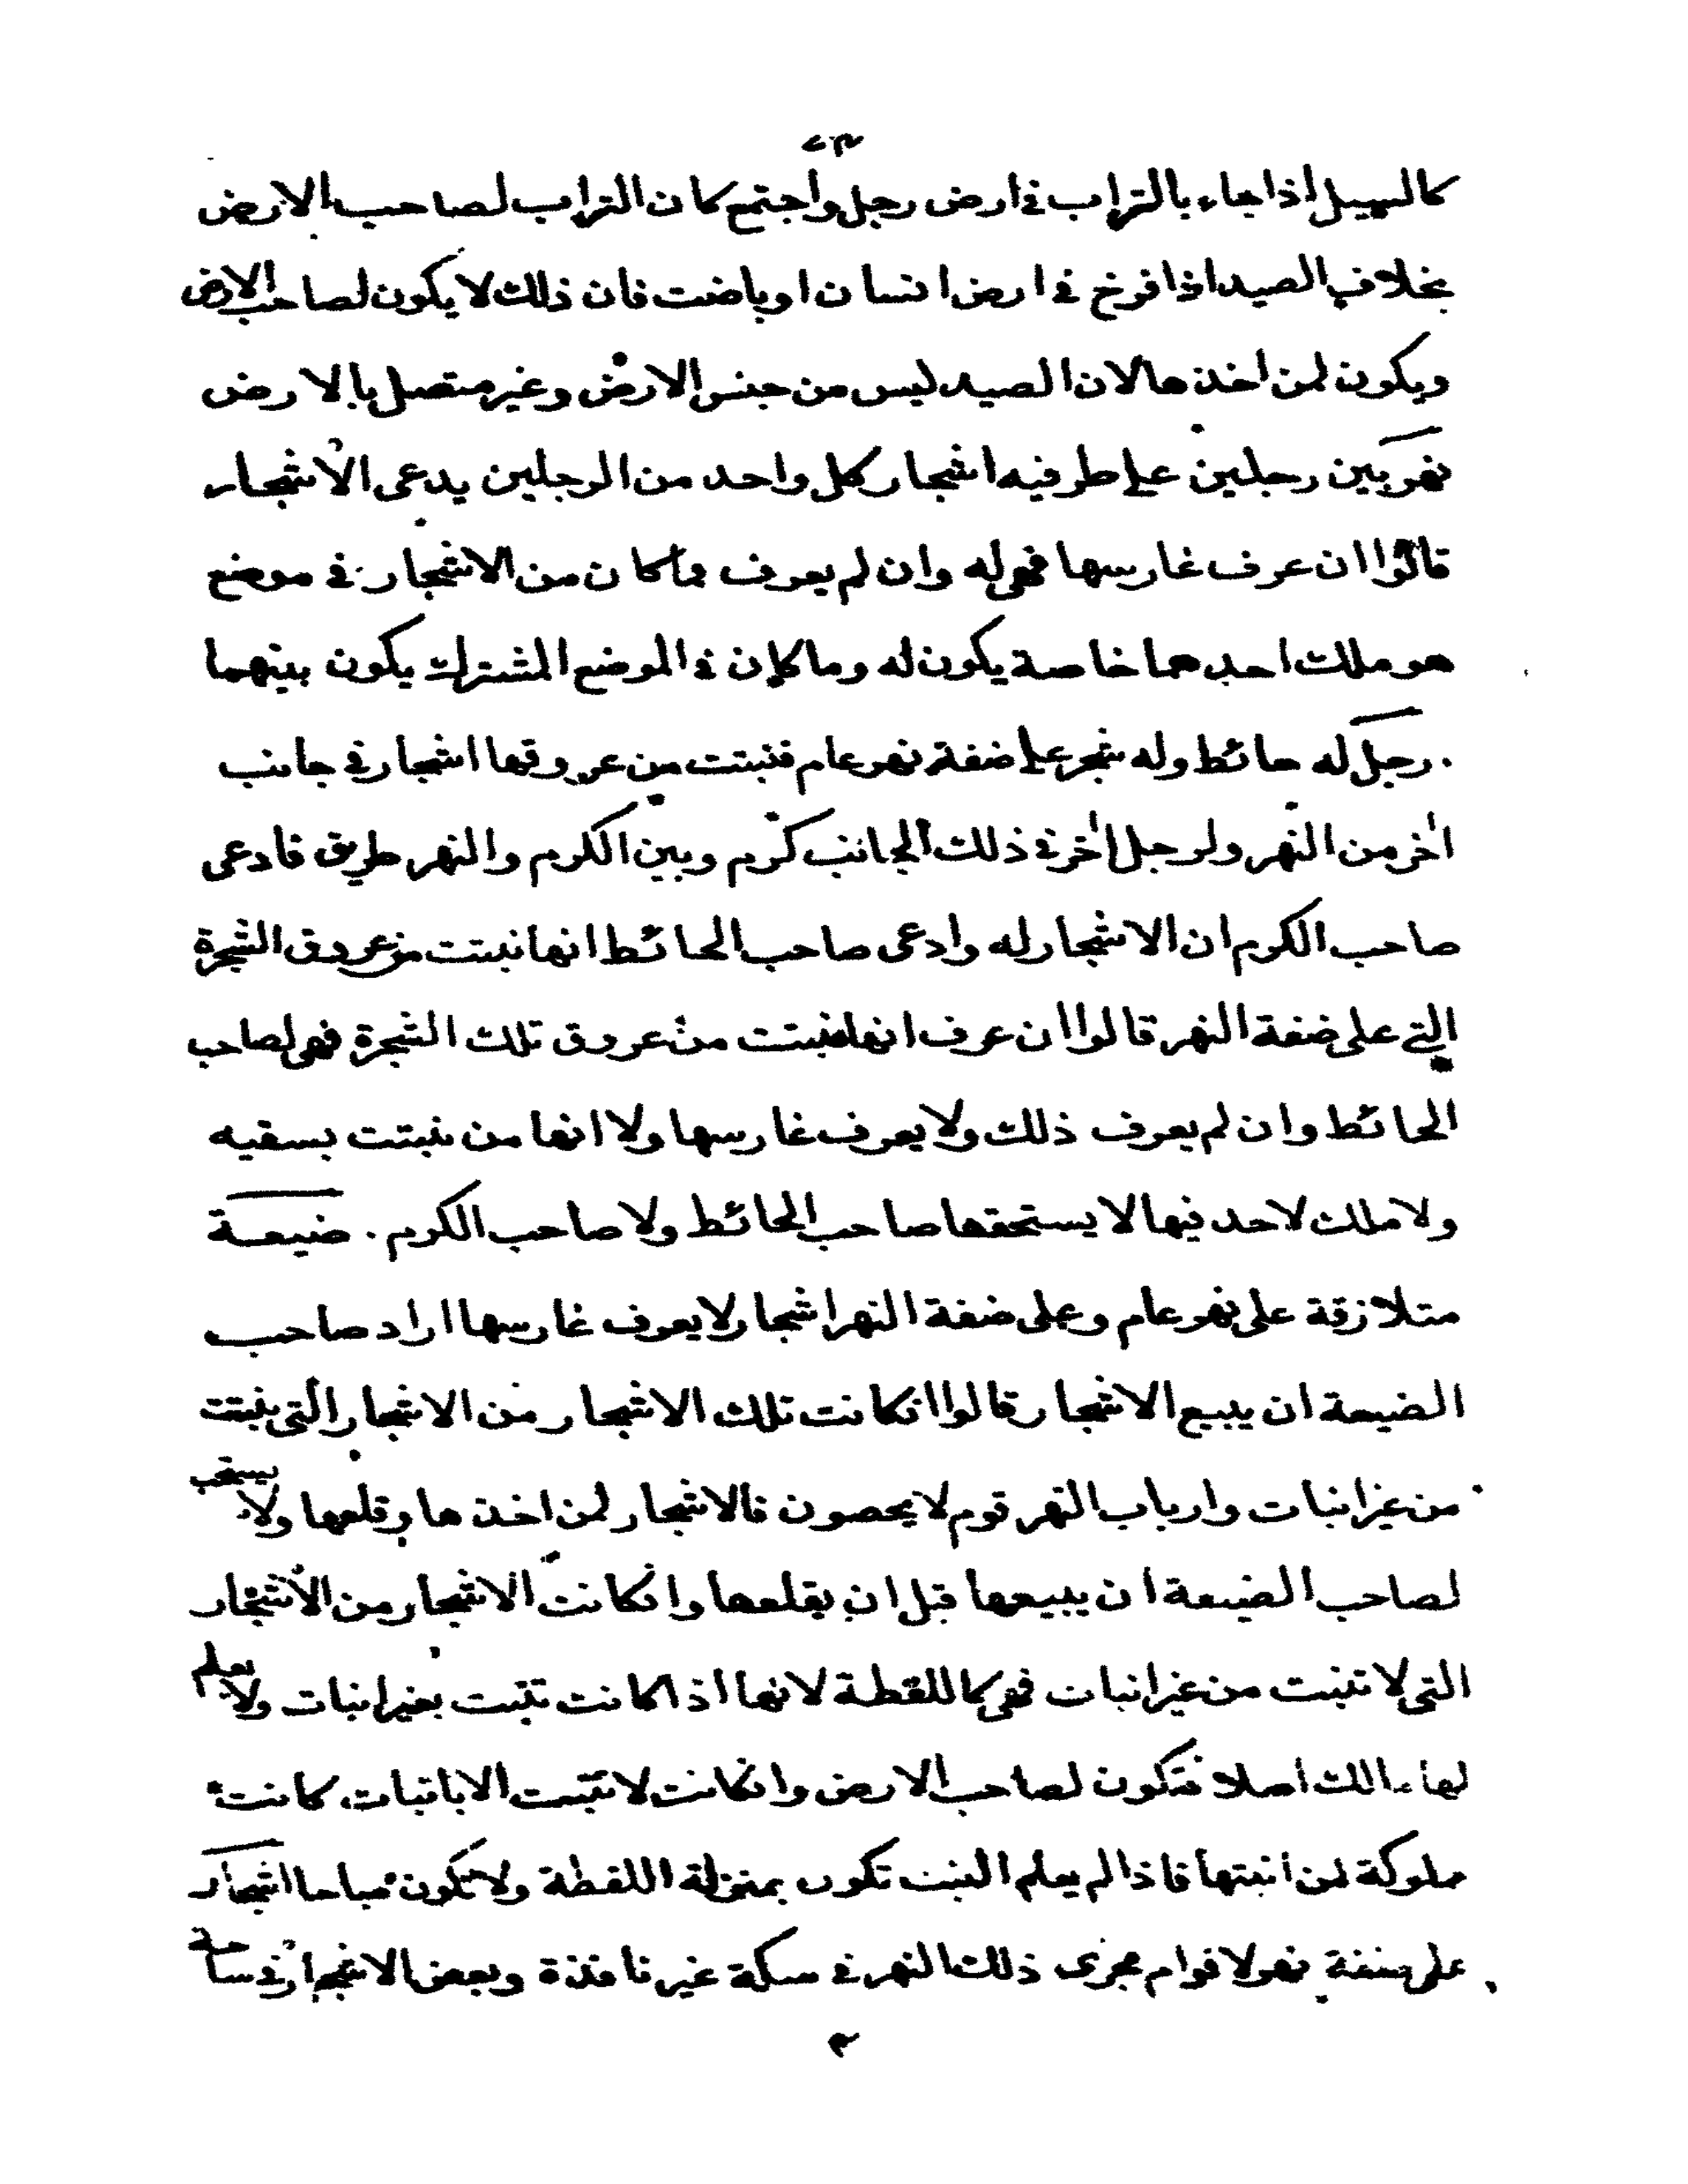 كالسيل اذا جاء بالتراب في ارض رجل واجتمع كان التراب لصاحب الارض
بخلاف الصيد اذا فرخ في ارض انسان او باضت فان ذلك لا يكون لصاحب الارض
ويكون لمن اخذها لان الصيد ليس من جنس الارض وغير متصل بالارض
نهر بين رجلين على طرفيه اشجار كل واحد من الرجلين يدعى الاشجار
قالوا ان عرف غارسها فهى له وان لم يعرف فما كان من الاشجار في موضع
هو ملك احدهما خاصة يكون له وما كان في الموضع المشترك يكون بينهما
رجل له حائط وله شجر على ضفة نهر عام فنبتت من عروقها اشجار في جانب
اخر من النهر ولرجل اخر في ذلك الجانب كرم وبين الكرم والنهر طريق فادعى
صاحب الكرم ان الاشجار له وادعى صاحب الحائط انها نبتت من عروق الشجرة
التي على ضفة النهر قالوا ان عرف انها نبتت من عروق تلك الشجرة فهى لصاحب
الحائط وان لم يعرف ذلك ولا يعرف غارسها ولا انها من نبتت بسقيه
ولا ملك لاحد فيها لا يستحقها صاحب الحائط ولا صاحب الكرم . ضيعة
متلازقة على نهر عام وعلى ضفة النهر اشجار لا يعرف غارسها اراد صاحب
الضيعة ان يبيع الاشجار قالوا انكانت تلك الاشجار من الاشجار التى نبتت
من غير انبات وارباب النهر قوم لا يحصون فالاشجار لمن اخذها وقلعها ولا يستحب
لصاحب الضيعة ان يبيعها قبل ان يقلعها وانكانت الاشجار من الاشجار
التى لا تنبت من غير انبات فهى كاللقطة لانها اذا كانت تنبت بغير انبات ولا يعلم
لها مالك اصلا فتكون لصاحب الارض وانكانت لا تنبت الا بانبات كانت
مملوكة لمن انبتها فاذا لم يعلم المنبت تكون بمنزلة اللقطة ولا تكون مباحا اشجار
على ضفة نهر لاقوام مجرى ذلك النهر في سكة غير نافذة وبعض الاشجار في ساحة